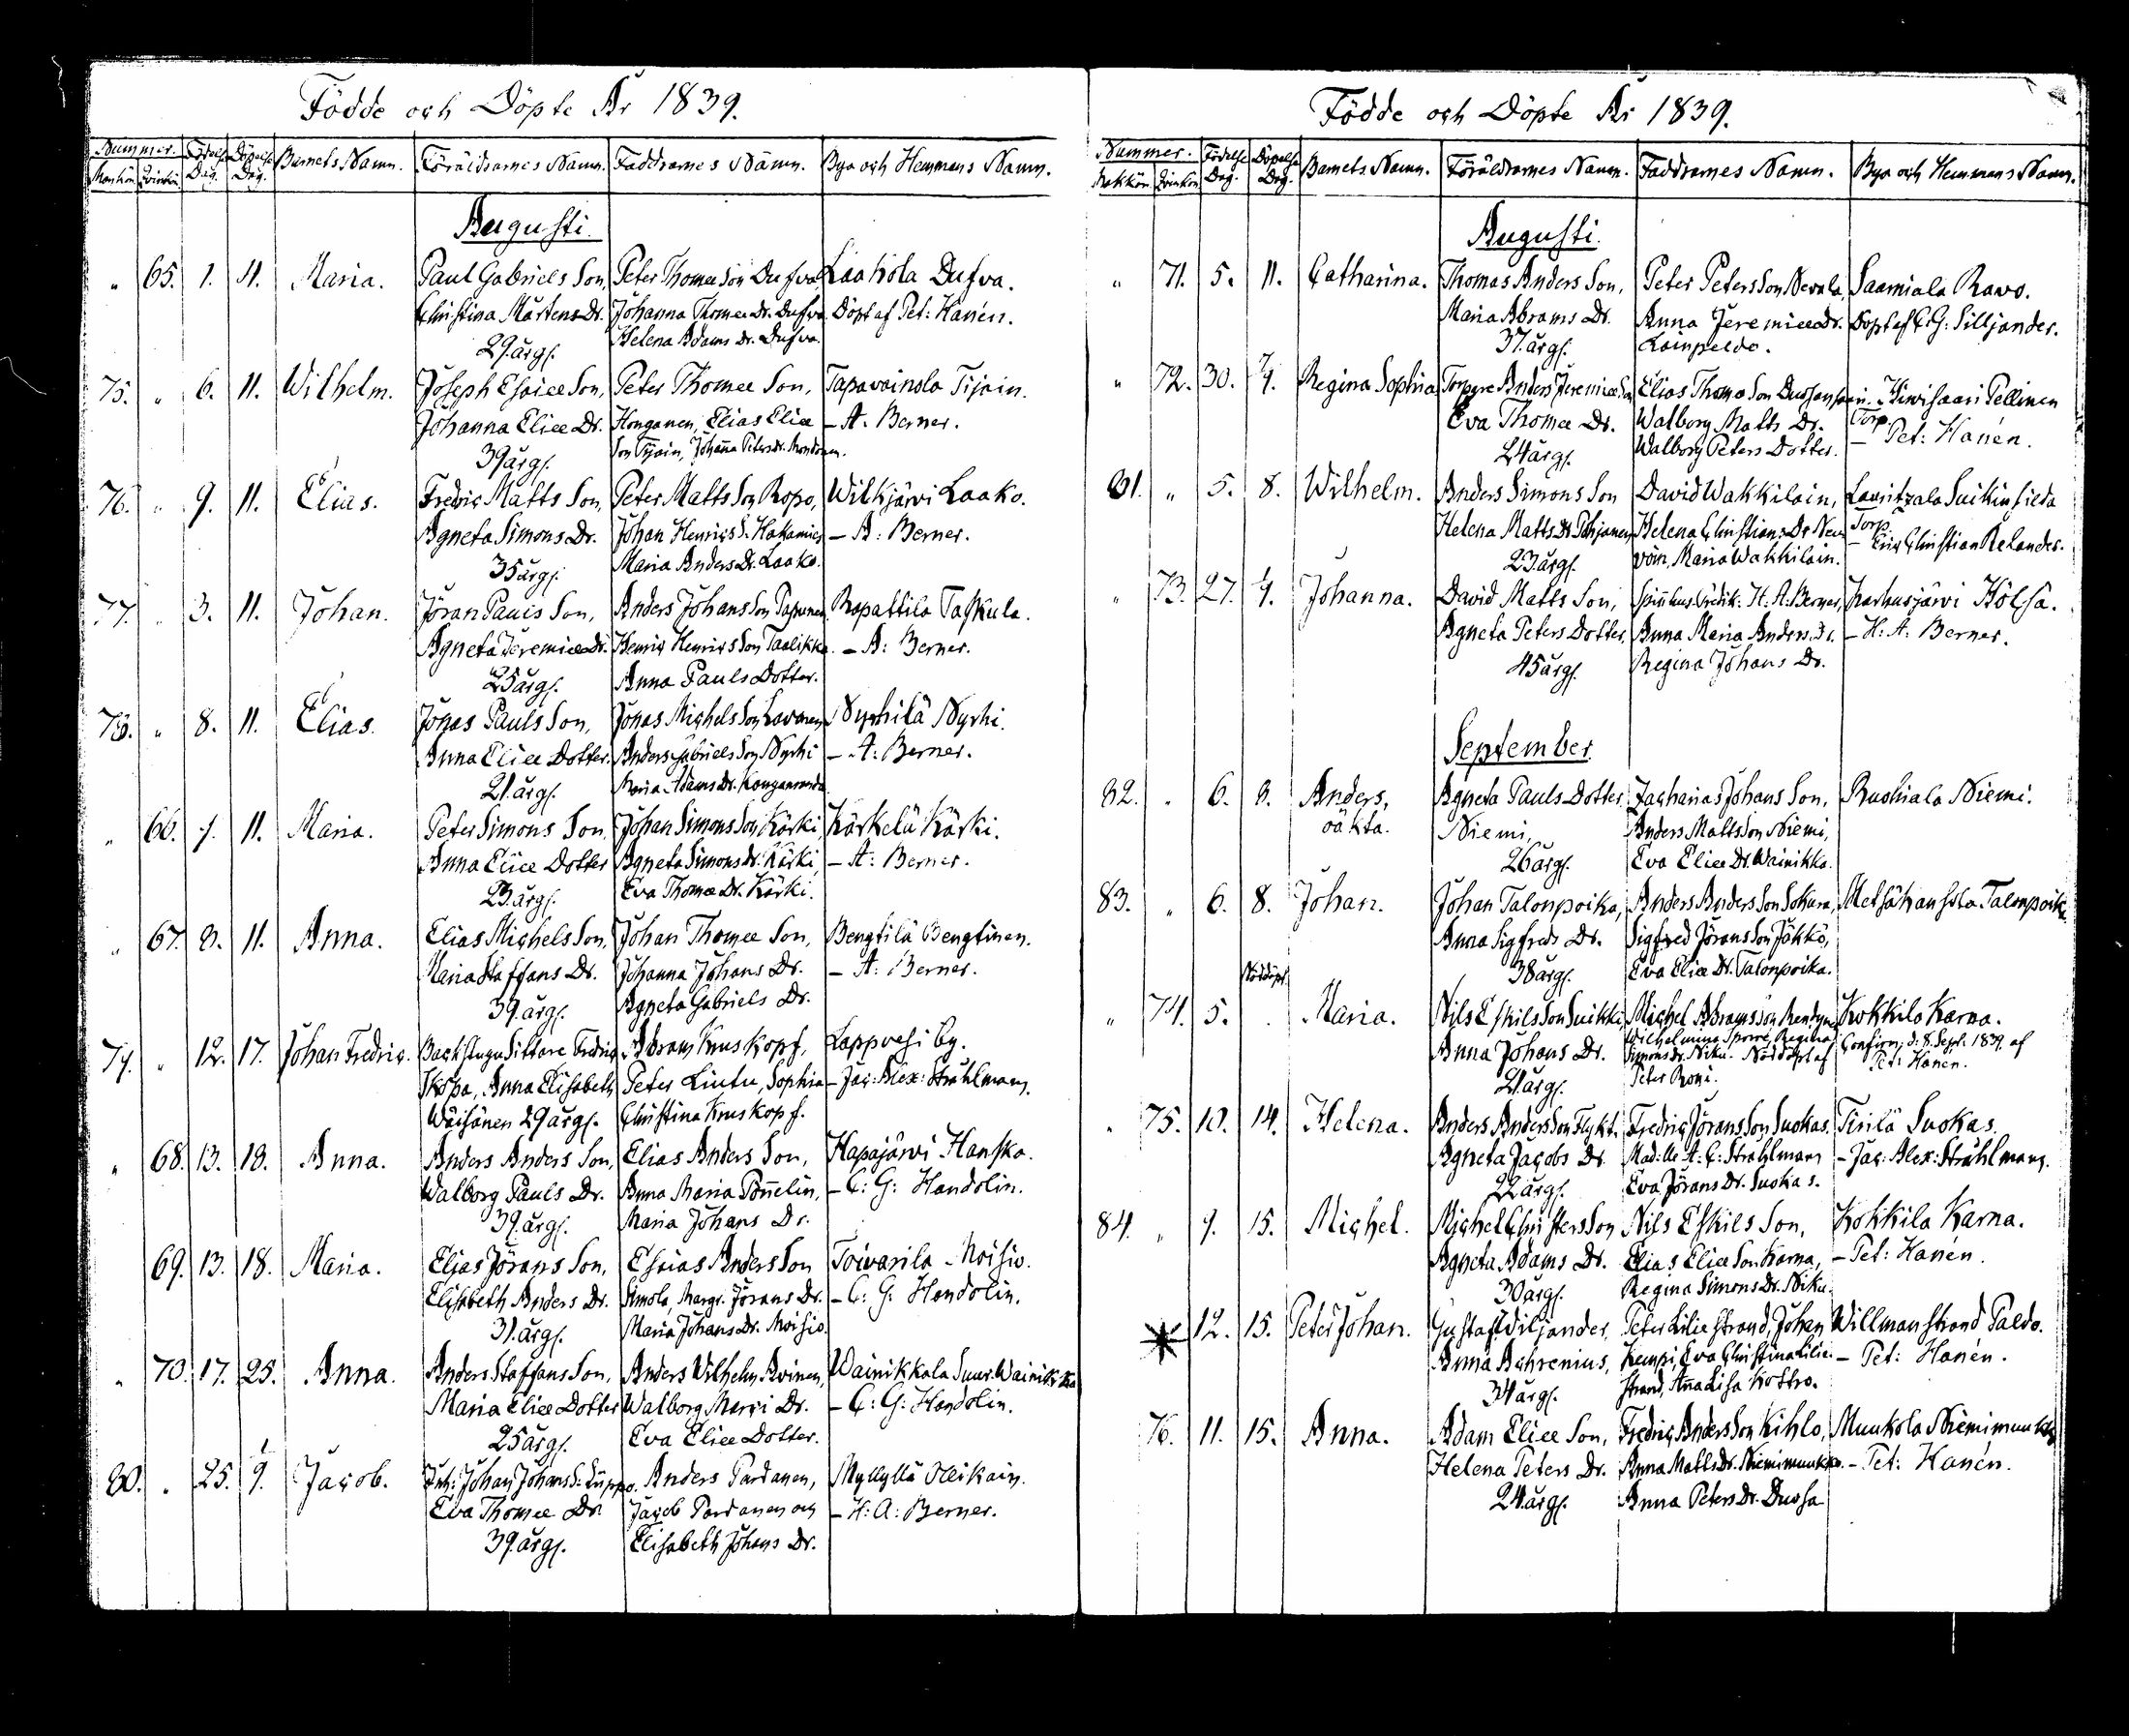 Födde och Döpte År 1839.
Nummer. Födelse Dag. Döpelse Dag. Barnets Namn. Föräldrarnes Namn. Faddrarnes Namn. Bya och Hemmans Namn.
Mankön Qvinkön
Augusti.
„ 65. 1. 4. Maria. Paul Gabriels Son, Peter Thomæ Son Dufva, Laakola Dufva.
Christina Mårtens Dr. Johanna Thomæ Dr. Dufva Döpt af Pet: Hanén.
29.årg. Helena Adams Dr. Dufva.
75. „ 6. 11. Wilhelm. Joseph Esaiæ Son, Peter Thomæ Son, Tapavainola Tijain.
Johanna Eliæ Dr. Honganen, Elias Eliæ – A. Berner.
39årg. Son Tijain, Johanna Peters Dr. Mondonen.
76. „ 9. 11. Elias. Fredric Matts Son, Peter Matts Son Ropo, Wilkjärvi Laako.
Agneta Simons Dr. Johan Henrics S. Hakamies – A: Berner.
35årg. Maria Anders Dr. Laako.
77. „ 3. 11. Johan. Jöran Pauls Son, Anders Johans Son Tapanen Ropattila Taskula.
Agneta Jeremiæ Dr. Henric Henrics Son Taalikka. – A: Berner.
25årg. Anna Pauls Dotter.
78. „ 8. 11. Elias. Jonas Pauls Son, Jonas Michels Son Lavonen Nyrhilä Nyrhi.
Anna Eliæ Dotter. Anders Gabriels Son Nyrhi – A: Berner.
21.årg. Maria Adams Dr.
„ 66. 7. 11. Maria. Peter Simons Son, Johan Simons Son Kärki, Kärkelä Kärki.
Anna Eliæ Dotter Agneta Simons Dr. Kärki, – A: Berner.
23.årg. Eva Thomæ Dr. Kärki.
„ 67. 8. 11. Anna. Elias Michels Son, Johan Thomæ Son, Bengtilä Bengtinen.
Maria Staffans Dr. Johanna Johans Dr. – A: Berner.
39.årg. Agneta Gabriels Dr.
79. „ 12. 17. Johan Fredric. Backstugusittare Fredric Abram Kruskopf, Lappvesi by.
Skopa, Anna Elisabeth Peter Lintu, Sophia – Jac: Alex: Stråhlman.
Wäisänen 29årg. Christina Kruskopf.
„ 68. 13. 18. Anna. Anders Anders Son, Elias Anders Son, Hapajärvi Hanska.
Walborg Pauls Dr. Anna Maria Ponnelin, – C: G: Handolin.
39.årg. Maria Johans Dr.
69. 13. 18. Maria. Elias Jörans Son, Esaias Anders Son Toivarila – Moisio.
Elisabeth Anders Dr. Simola, Margr. Jörans Dr. – C: G: Handolin.
31.årg. Maria Johans Dr. Moisio.
„ 70. 17. 25. Anna. Anders Staffans Son, Anders Wilhelm Avinen, Wainikkala Suur Wainikka
Maria Eliæ Dotter Walborg Marci Dr. – C: G: Handolin.
25årg. Eva Eliæ Dotter.
80. „ 25. 9. Jacob. Inh: Johan Johans S: Luppo. Anders Pardanen, Myllylä Olikain.
Eva Thomæ Dr. Jacob Pardanen och – H: A: Berner.
39.årg. Elisabeth Johans Dr.
Födde och Döpte År 1839.
Nummer. Födelse Dag. Döpelse Dag. Barnets Namn. Föräldrarnes Namn. Faddrarnes Namn. Bya och Hemmans Namn.
Makkön Qvinkön
Augusti.
„ 71. 5. 11. Catharina. Thomas Anders Son, Peter Peters Son Nevala, Saamiala Ravo.
Maria Abrams Dr. Anna Jeremiæ Dr. Döpt af C: G: Silljander.
37.årg. Lainpeldo.
„ 72. 30. 9. Regina Sophia Torpare Anders Jeremiæ Son Elias Thomæ Son Hiwisaari Pellinen
Eva Thomæ Dr. Walborg Matts Dr. Torp
24årg. Walborg Peters Dotter. – Pet: Hanén.
81. „ 5. 8. Wilhelm. Anders Simons Son David Wakkilain, Lauritzala
Helena Matts Dr. Pohjanen Helena Christians Dr. Torp.
23årg. Maria Wakkilain. – Eric Christian Relander.
„ 73. 27. 9. Johanna. David Matts Son, H. A. Berner, Karhusjärvi Hölsä.
Agneta Peters Dotter. Anna Maria Anders Dr. – H: A: Berner.
45årg. Regina Johans Dr.
September.
82. „ 6. 8. Anders, Agneta Pauls Dotter Zacharias Johans Son, Ruohiala Niemi.
oäkta. Niemi, Anders Matts Son Niemi,
26årg. Eva Eliæ Dr. Wainikka.
83. „ 6. 8. Johan. Johan Talonpoika, Anders Anders Son Sokura, Metsäkansola Talonpoika.
Anna Sigfreds Dr. Sigfred Jörans Son Jäkkö,
38årg. Eva Eliæ Dr. Talonpoika.
Nöddöpt
„ 74. 5. Maria. Nils Eskils Son Suikki, Michel Abrams Son Kokkila Karna.
Anna Johans Dr. Wilhelmina Sporre, Regina Confirm: d: 8. Sept. 1839. af
21årg. Simons Dr. Niku. Nöddöpt af Pet: Hanén.
Peter Roni.
„ 75. 10. 14. Helena. Anders Anders Son Flykt. Fredric Jörans Son Suokas. Tirilä Suokas.
Agneta Jacobs Dr. Mad:lle A: C: Stråhlman – Jac: Alex: Stråhlman.
22årg. Eva Jörans Dr. Suokas.
84. „ 9. 15. Michel. Michel Christers Son Nils Eskils Son, Kokkila Karna.
Agneta Adams Dr. Elias Eliæ Son Karna, – Pet: Hanén.
30årg. Regina Simons Dr. Niku.
12. 15. Peter Johan. Gustaf Wiljander, Peter Liliestrand, Johan Willmanstrand Paldo.
Anna Achrenius, Kemppi, Eva Christina Lilie- – Pet: Hanén.
34årg. strand, Anna Lisa Kostro.
76. 11. 15. Anna. Adam Eliæ Son, Fredric Anders Son Kihlo, Muukola Niemimuukko
Helena Peters Dr. Anna Matts Dr. Niemimuukko. – Pet: Hanén.
24.årg. Anna Peters Dr. Dussa